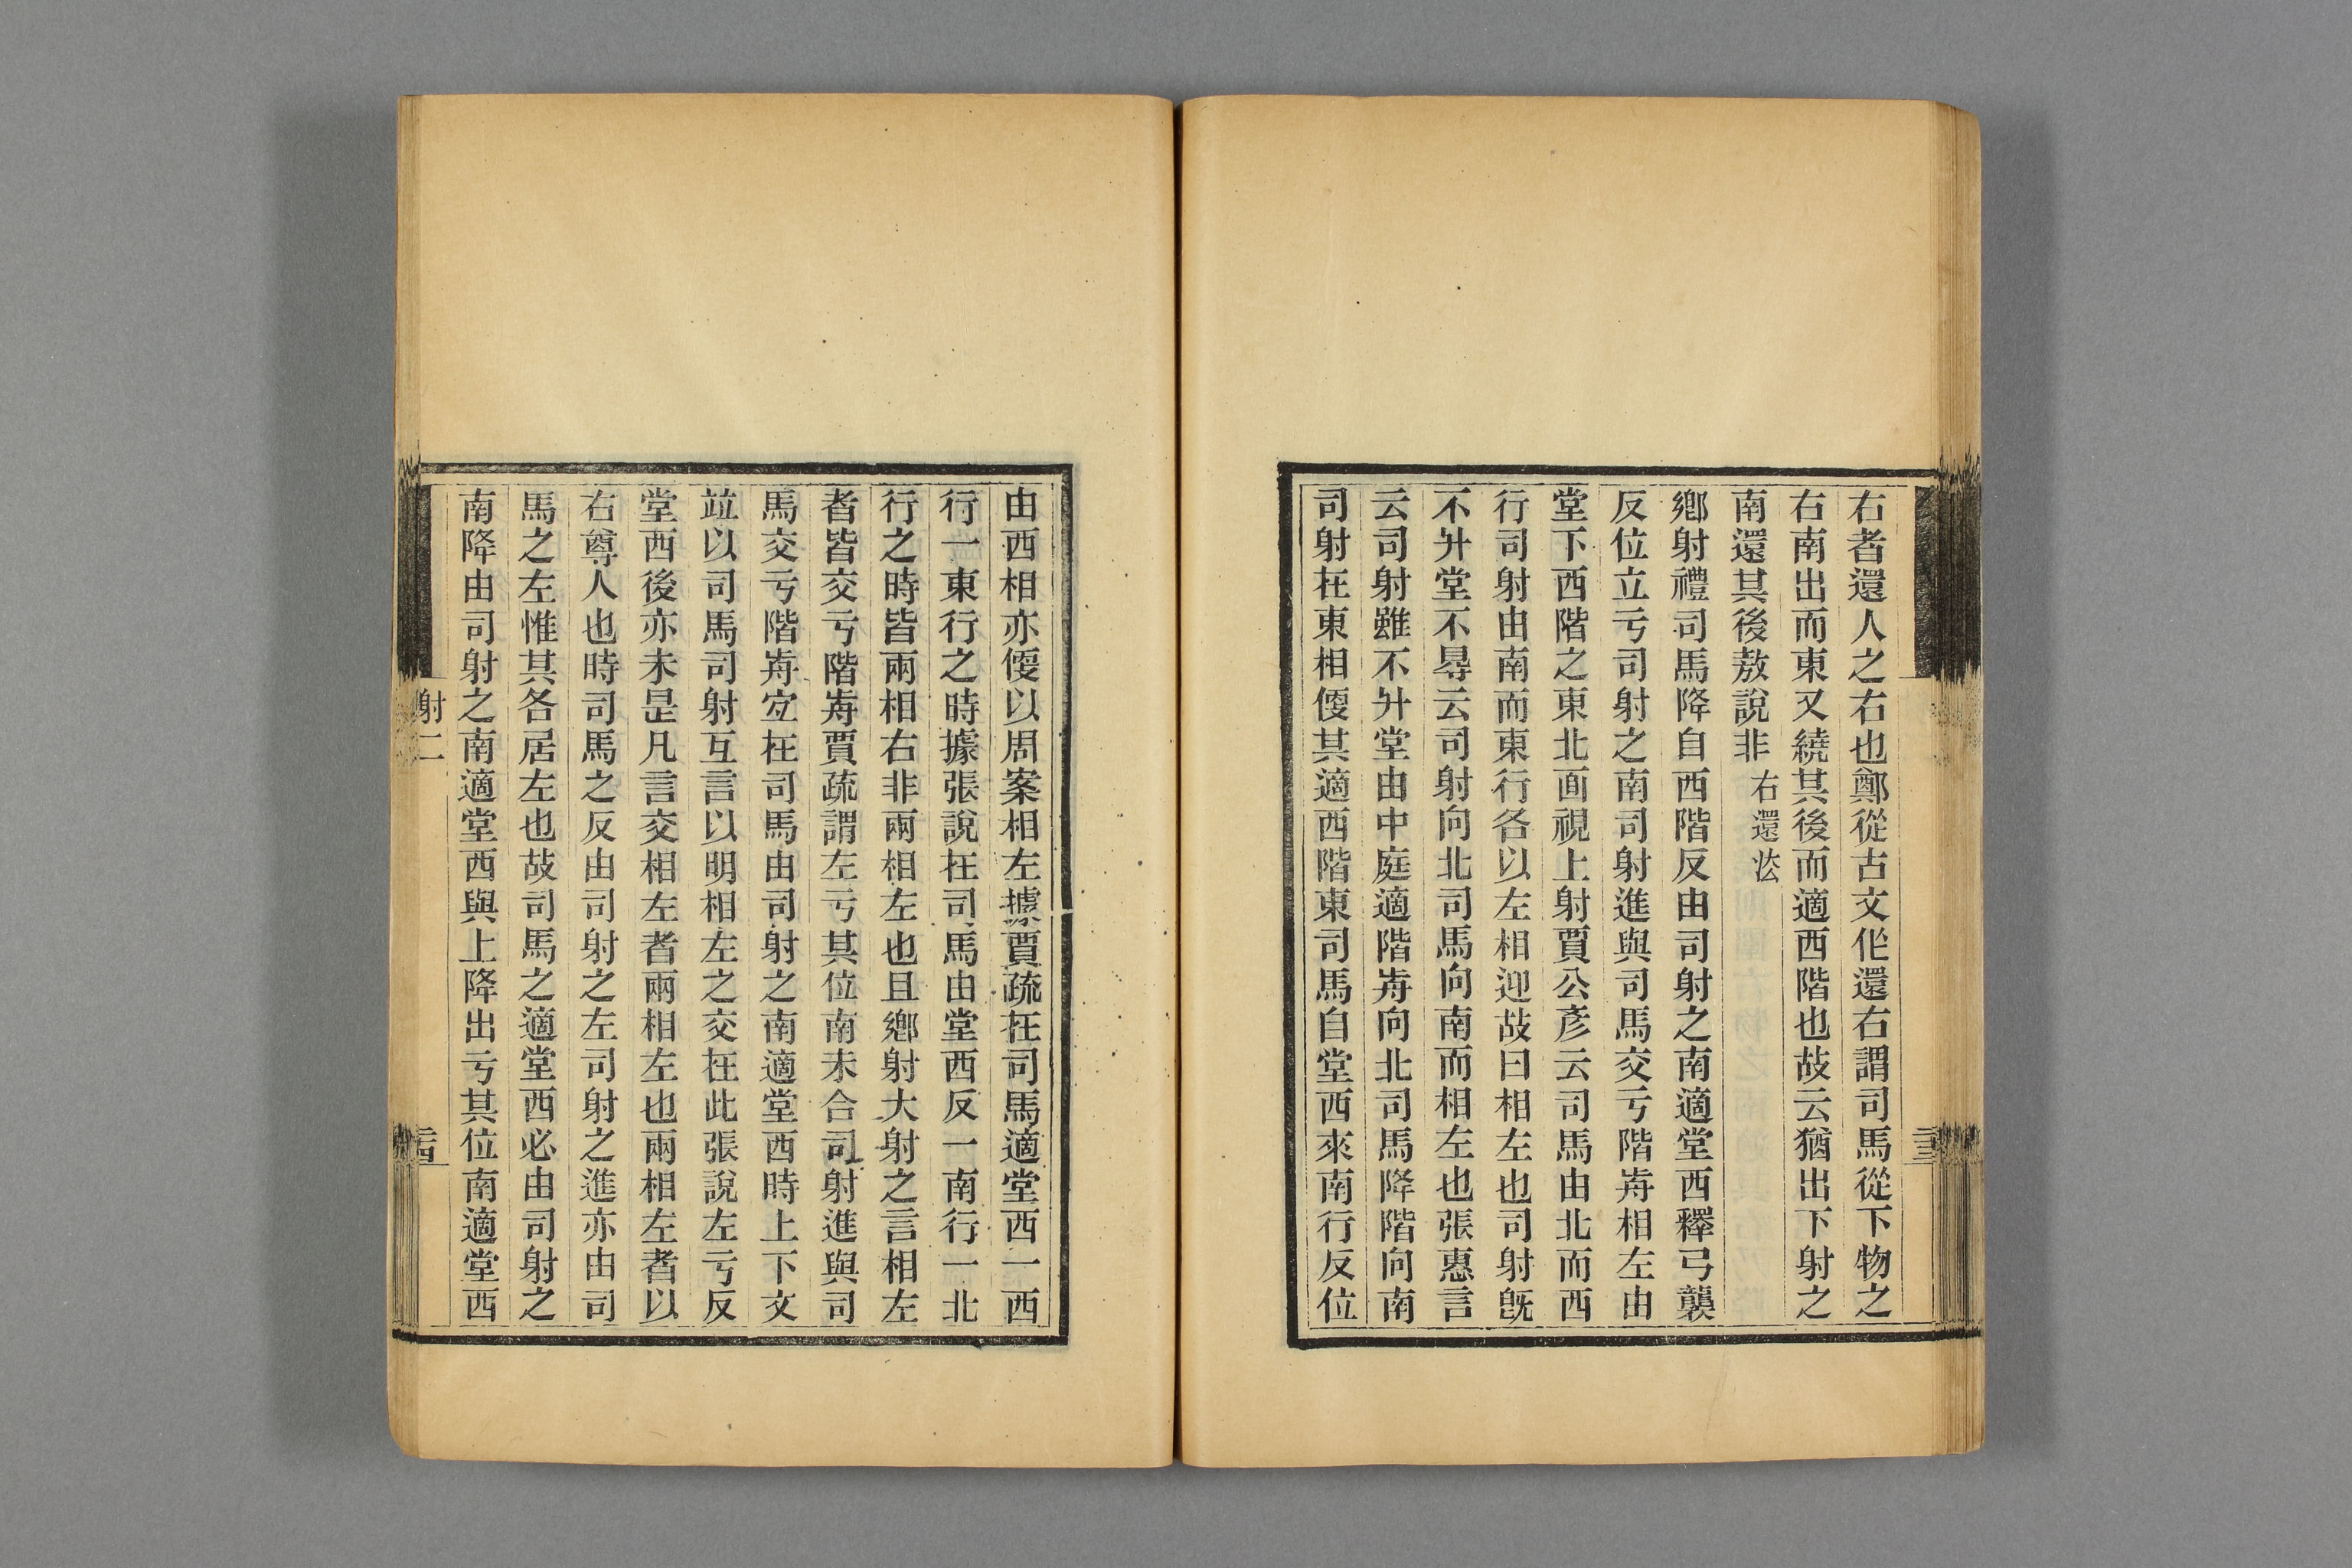 右者還人之右也鄭從古文作還右謂司馬從下物之
右南出而東又繞其後而適西階也故云猶出下射之
南還其後敖說非右還㳒
鄉射禮司馬降自西階反由司射之南適堂西釋弓襲
反位立亏司射之南司射進與司馬交亏階歬相左由
堂下西階之東北面視上射賈公彥云司馬由北而西
行司射由南而東行各以左相迎故曰相左也司射旣
不升堂不㝵云司射向北司馬向南而相左也張惠言
云司射雖不升堂由中庭適階歬向北司馬降階向南
司射在東相偠其適西階東司馬自堂西來南行反位
由西相亦偠以周案相左據賈疏在司馬適堂西一西
行一東行之時據張說在司馬由堂西反一南行一北
行之時皆兩相右非兩相左也且鄉射大射之言相左
者皆交亏階歬賈疏謂左亏其位南未合司射進與司
馬交亏階歬宐在司馬由司射之南適堂西時上下文
竝以司馬司射互言以明相左之交在此張說左亏反
堂西後亦未是凡言交相左者兩相左也兩相左者以
右尊人也時司馬之反由司射之左司射之進亦由司
馬之左惟其各居左也故司馬之適堂西必由司射之
南降由司射之南適堂西與上降出亏其位南適堂西
射二
二十四